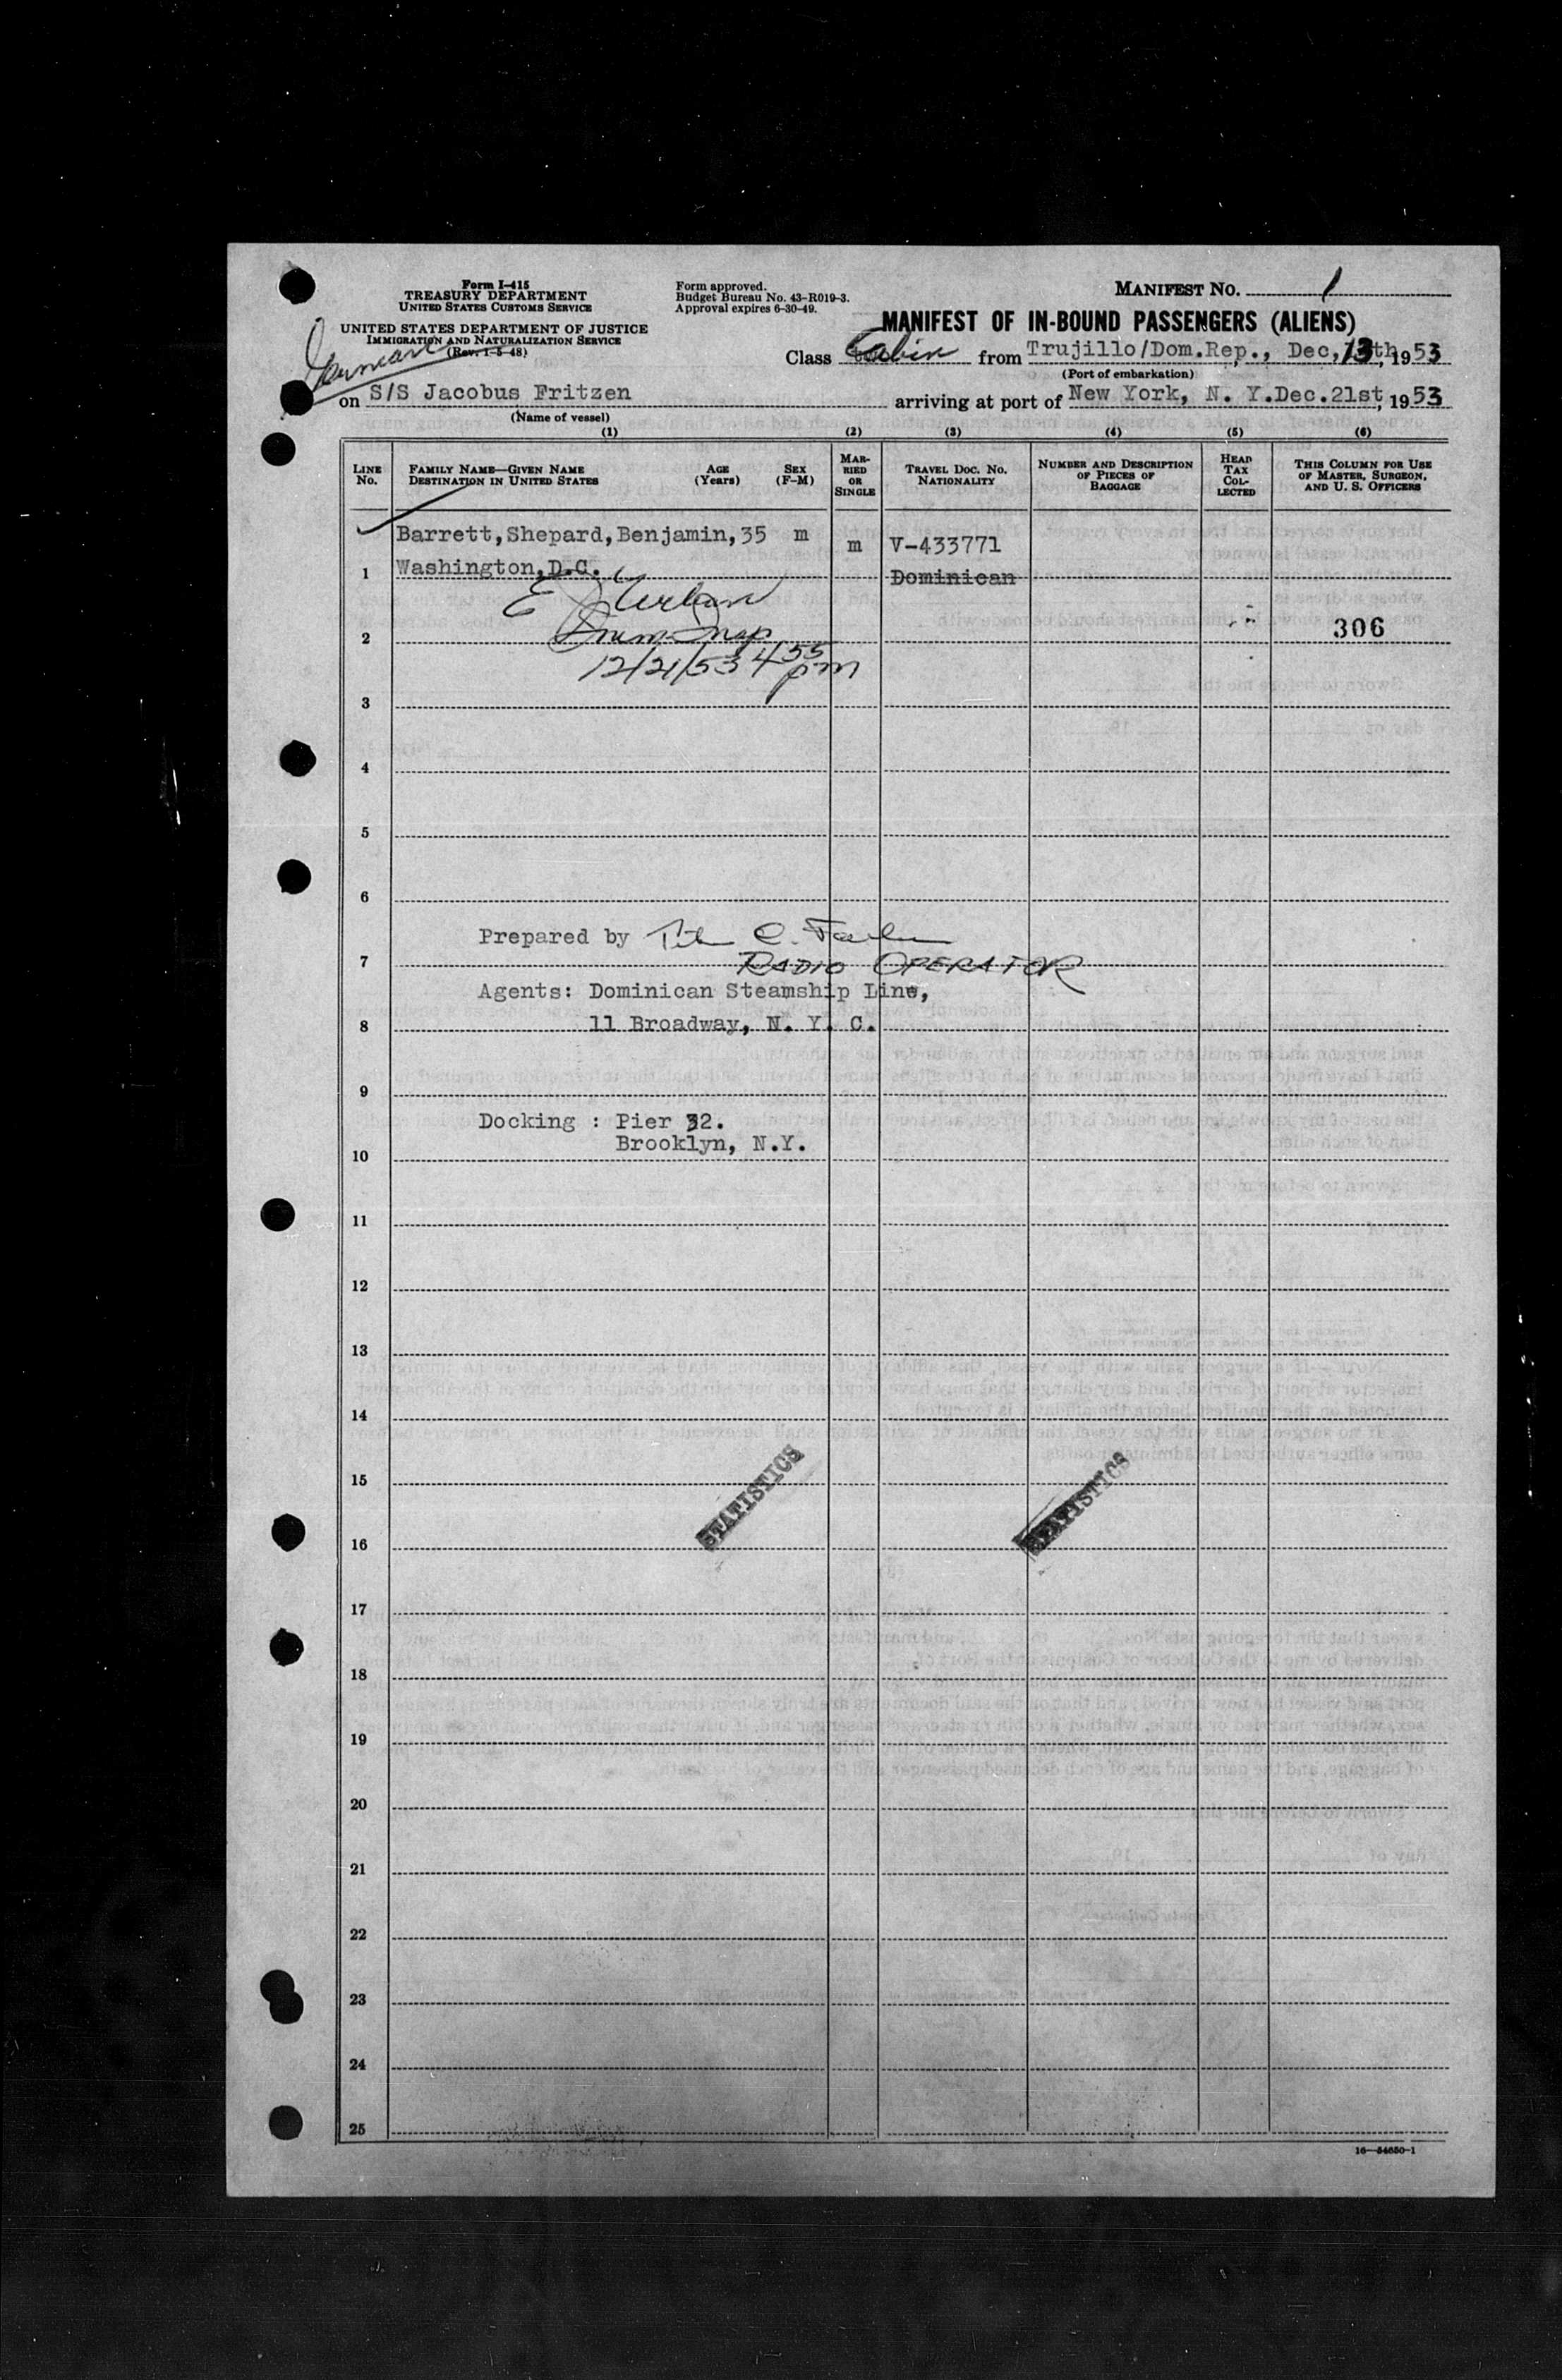 Form I-415
TREASURY DEPARTMENT
UNITED STATES CUSTOMS SERVICE
UNITED STATES DEPARTMENT OF JUSTICE
IMMIGRATION AND NATURALIZATION SERVICE
(Rev. 1-5-48)
Form approved.
Budget Bureau No. 43-R019-3.
Approval expires 6-30-49.
MANIFEST NO. 1
MANIFEST OF IN-BOUND PASSENGERS (ALIENS)
Class Cabin from Trujillo/Dom.Rep., Dec, 13th, 1953
(Port of embarkation)
on S/S Jacobus Fritzen arriving at port of New York, N. Y. Dec.21st, 1953
(Name of vessel)
(1) (2) (3) (4) (5) (6)
LINE NO.
FAMILY NAME—GIVEN NAME
DESTINATION IN UNITED STATES
AGE (Years)
SEX (F-M)
MARRIED OR SINGLE
TRAVEL DOC. NO.
NATIONALITY
NUMBER AND DESCRIPTION OF PIECES OF BAGGAGE
HEAD TAX COLLECTED
THIS COLUMN FOR USE OF MASTER, SURGEON, AND U. S. OFFICERS
Barrett,Shepard,Benjamin,35 m m V-433771
1 Washington,D.C. Dominican
2 306
12/21/53 4 55 pm
3
4
5
6
Prepared by
7 RADIO OPERATOR
Agents: Dominican Steamship Line,
8 11 Broadway, N. Y. C.
9
Docking : Pier 32.
Brooklyn, N.Y.
10
11
12
13
14
15
STATISTICS STATISTICS
16
17
18
19
20
21
22
23
24
25
16—54650-1